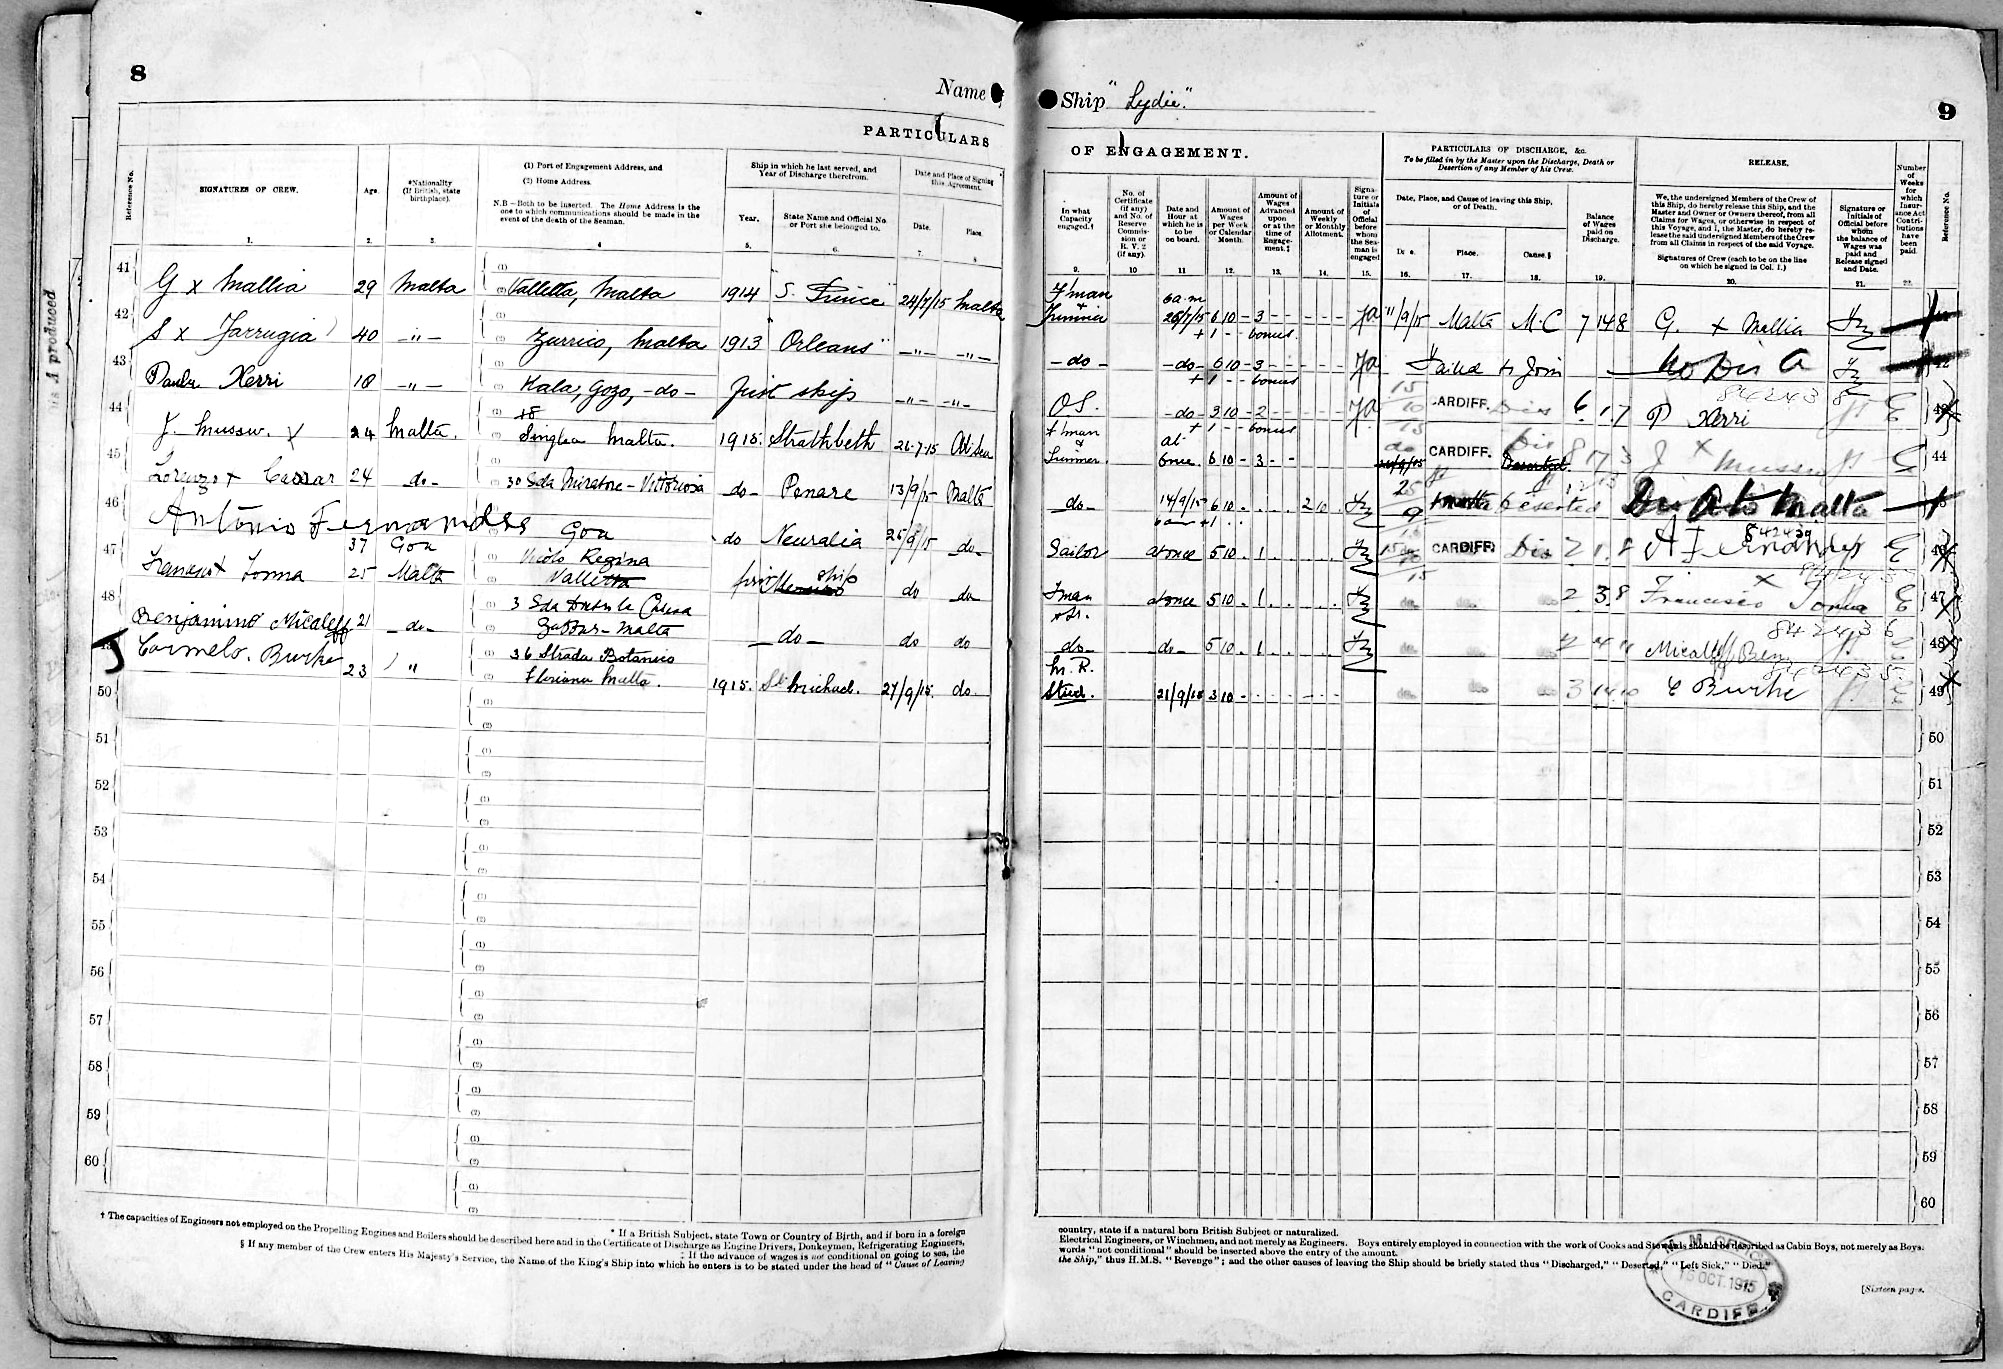 8
Name of
PARTICULARS
Reference No.
SIGNATURES OF CREW.
Age.
*Nationality
(If British, state
birthplace).
(1) Port of Engagement Address, and
(2) Home Address.
N.B—Both to be inserted. The Home Address is the
one to which communications should be made in the
event of the death of the Seaman.
Ship in which he last served, and
Year of Discharge therefrom.
Year.
State Name and Official No.
or Port she belonged to.
Date and Place of Signing
this Agreement.
Date.
Place.
1. 2. 3. 4 5. 6. 7. 8
41 G x Mallia 29 Malta (1) (2) Valletta, Malta 1914 S. Prince 24/7/15 Malta
42 S x Farrugia 40 —"— (1) (2) Zurrico, Malta 1913 Orleans" —"— —"—
43 Paulu Xerri 18 —"— (1) (2) Kala, Gozo, -do- First ship —"— —"—
44 J. Mussu. X 24 Malta. (1) 18 (2) Singlea Malta. 1915. Strathbeth 26-7-15 At sea
45 Lorenzo x Cassar 24 do- (1) (2) 30 Sda Miratore - Vittoriosa -do- Penare 13/9/15 Malta
46 Antonio Fernandes 37 Goa (1) Goa (2) do Neuralia 25/9/15 do-
47 Francesco x Tonna 25 Malta (1) Vicolo Regina (2) Valletta first ship do do-
48 Benjamino Micaleff 21 do- (1) 3 Sda (2) Zabbar - Malta -do- do do
Carmelo. Burke 23 " (1) 36 Strada Botanico (2) Floriana Malta. 1915. St Michael. 27/9/15. do
50 (1) (2)
51 (1) (2)
52 (1) (2)
53 (1) (2)
54 (1) (2)
55 (1) (2)
56 (1) (2)
57 (1) (2)
58 (1) (2)
59 (1) (2)
60 (1) (2)
† The capacities of Engineers not employed on the Propelling Engines and Boilers should be described here and in the Certificate of Discharge as Engine Drivers, Donkeymen, Refrigerating Engineers,
* If a British Subject, state Town or Country of Birth, and if born in a foreign
‡ If the advance of wages is not conditional on going to sea, the
§ If any member of the Crew enters His Majesty's Service, the Name of the King's Ship into which he enters is to be stated under the head of "Cause of Leaving
Ship "Lydie"
9
OF ENGAGEMENT.
PARTICULARS OF DISCHARGE, &c.
To be filled in by the Master upon the Discharge, Death or
Desertion of any Member of his Crew.
RELEASE.
In what
Capacity
engaged.†
No. of
Certificate
(if any)
and No. of
Reserve
Commis-
sion or
R. V. 2
(if any).
Date and
Hour at
which he is
to be
on board.
Amount of
Wages
per Week
or Calendar
Month.
Amount of
Wages
Advanced
upon
or at the
time of
Engage-
ment.‡
Amount of
Weekly
or Monthly
Allotment.
Signa-
ture or
Initials
of
Official
before
whom
the Sea-
man is
engaged
Date, Place, and Cause of leaving this Ship,
or of Death.
Date.
Place.
Cause.§
Balance
of Wages
paid on
Discharge.
We, the undersigned Members of the Crew of
this Ship, do hereby release this Ship, and the
Master and Owner or Owners thereof, from all
Claims for Wages, or otherwise in respect of
this Voyage, and I, the Master, do hereby re-
lease the said undersigned Members of the Crew
from all Claims in respect of the said Voyage.
Signatures of Crew (each to be on the line
on which he signed in Col. 1.)
Signature or
Initials of
Official before
whom
the balance of
Wages was
paid and
Release signed
and Date.
Number
of
Weeks
for
which
Insur-
ance Act
Contri-
butions
have
been
paid.
Reference No.
9. 10 11 12. 13. 14. 15. 16. 17. 18. 19. 20. 21. 22.
F'man + Trimmer 6 a.m 26/7/15 6 10 - 3 - - + 1 - - bonus "/9/15 Malta M.C 7 14 8 G. x Mallia
-do- -do- 6 10 - 3 - - + 1 - - bonus Failed to Join No Dis A 42
O.S. -do- 3 10 - 2 - - + 1 - - bonus 15/10/15 CARDIFF. Dis 6 1 7 P Xerri 842438 43
F'man & Trimmer at once 6 10 - 3 - - do CARDIFF. Dis Deserted. 8 17 3 J x Mussu 44
do- 14/9/15 6 am 6 10 + 1 2 10 25/9 Malta Deserted Dis A to Malta
Sailor at once 5 10 . 1 CARDIFF. Dis 2 1 8 A Fernandes 46
F'man & Tr. at once 5 10 . 1 do do do 2 3 8 Francisco x Tonna 47
do- do- 5 10 . 1 do do do Micaleff Ben. 842436 48
M. R. Stwd. 21/9/15 3 10 - do do do 3 14 10 C Burke 49
50
51
52
53
54
55
56
57
58
59
60
country, state if a natural born British Subject or naturalized.
Electrical Engineers, or Winchmen, and not merely as Engineers. Boys entirely employed in connection with the work of Cooks and Stewards should be described as Cabin Boys, not merely as Boys.
words "not conditional" should be inserted above the entry of the amount.
the Ship," thus H.M.S. "Revenge"; and the other causes of leaving the Ship should be briefly stated thus "Discharged," "Deserted," "Left Sick," "Died."
[Sixteen pages.
M. M. OFFICE
15 OCT. 1915
CARDIFF
as A produced